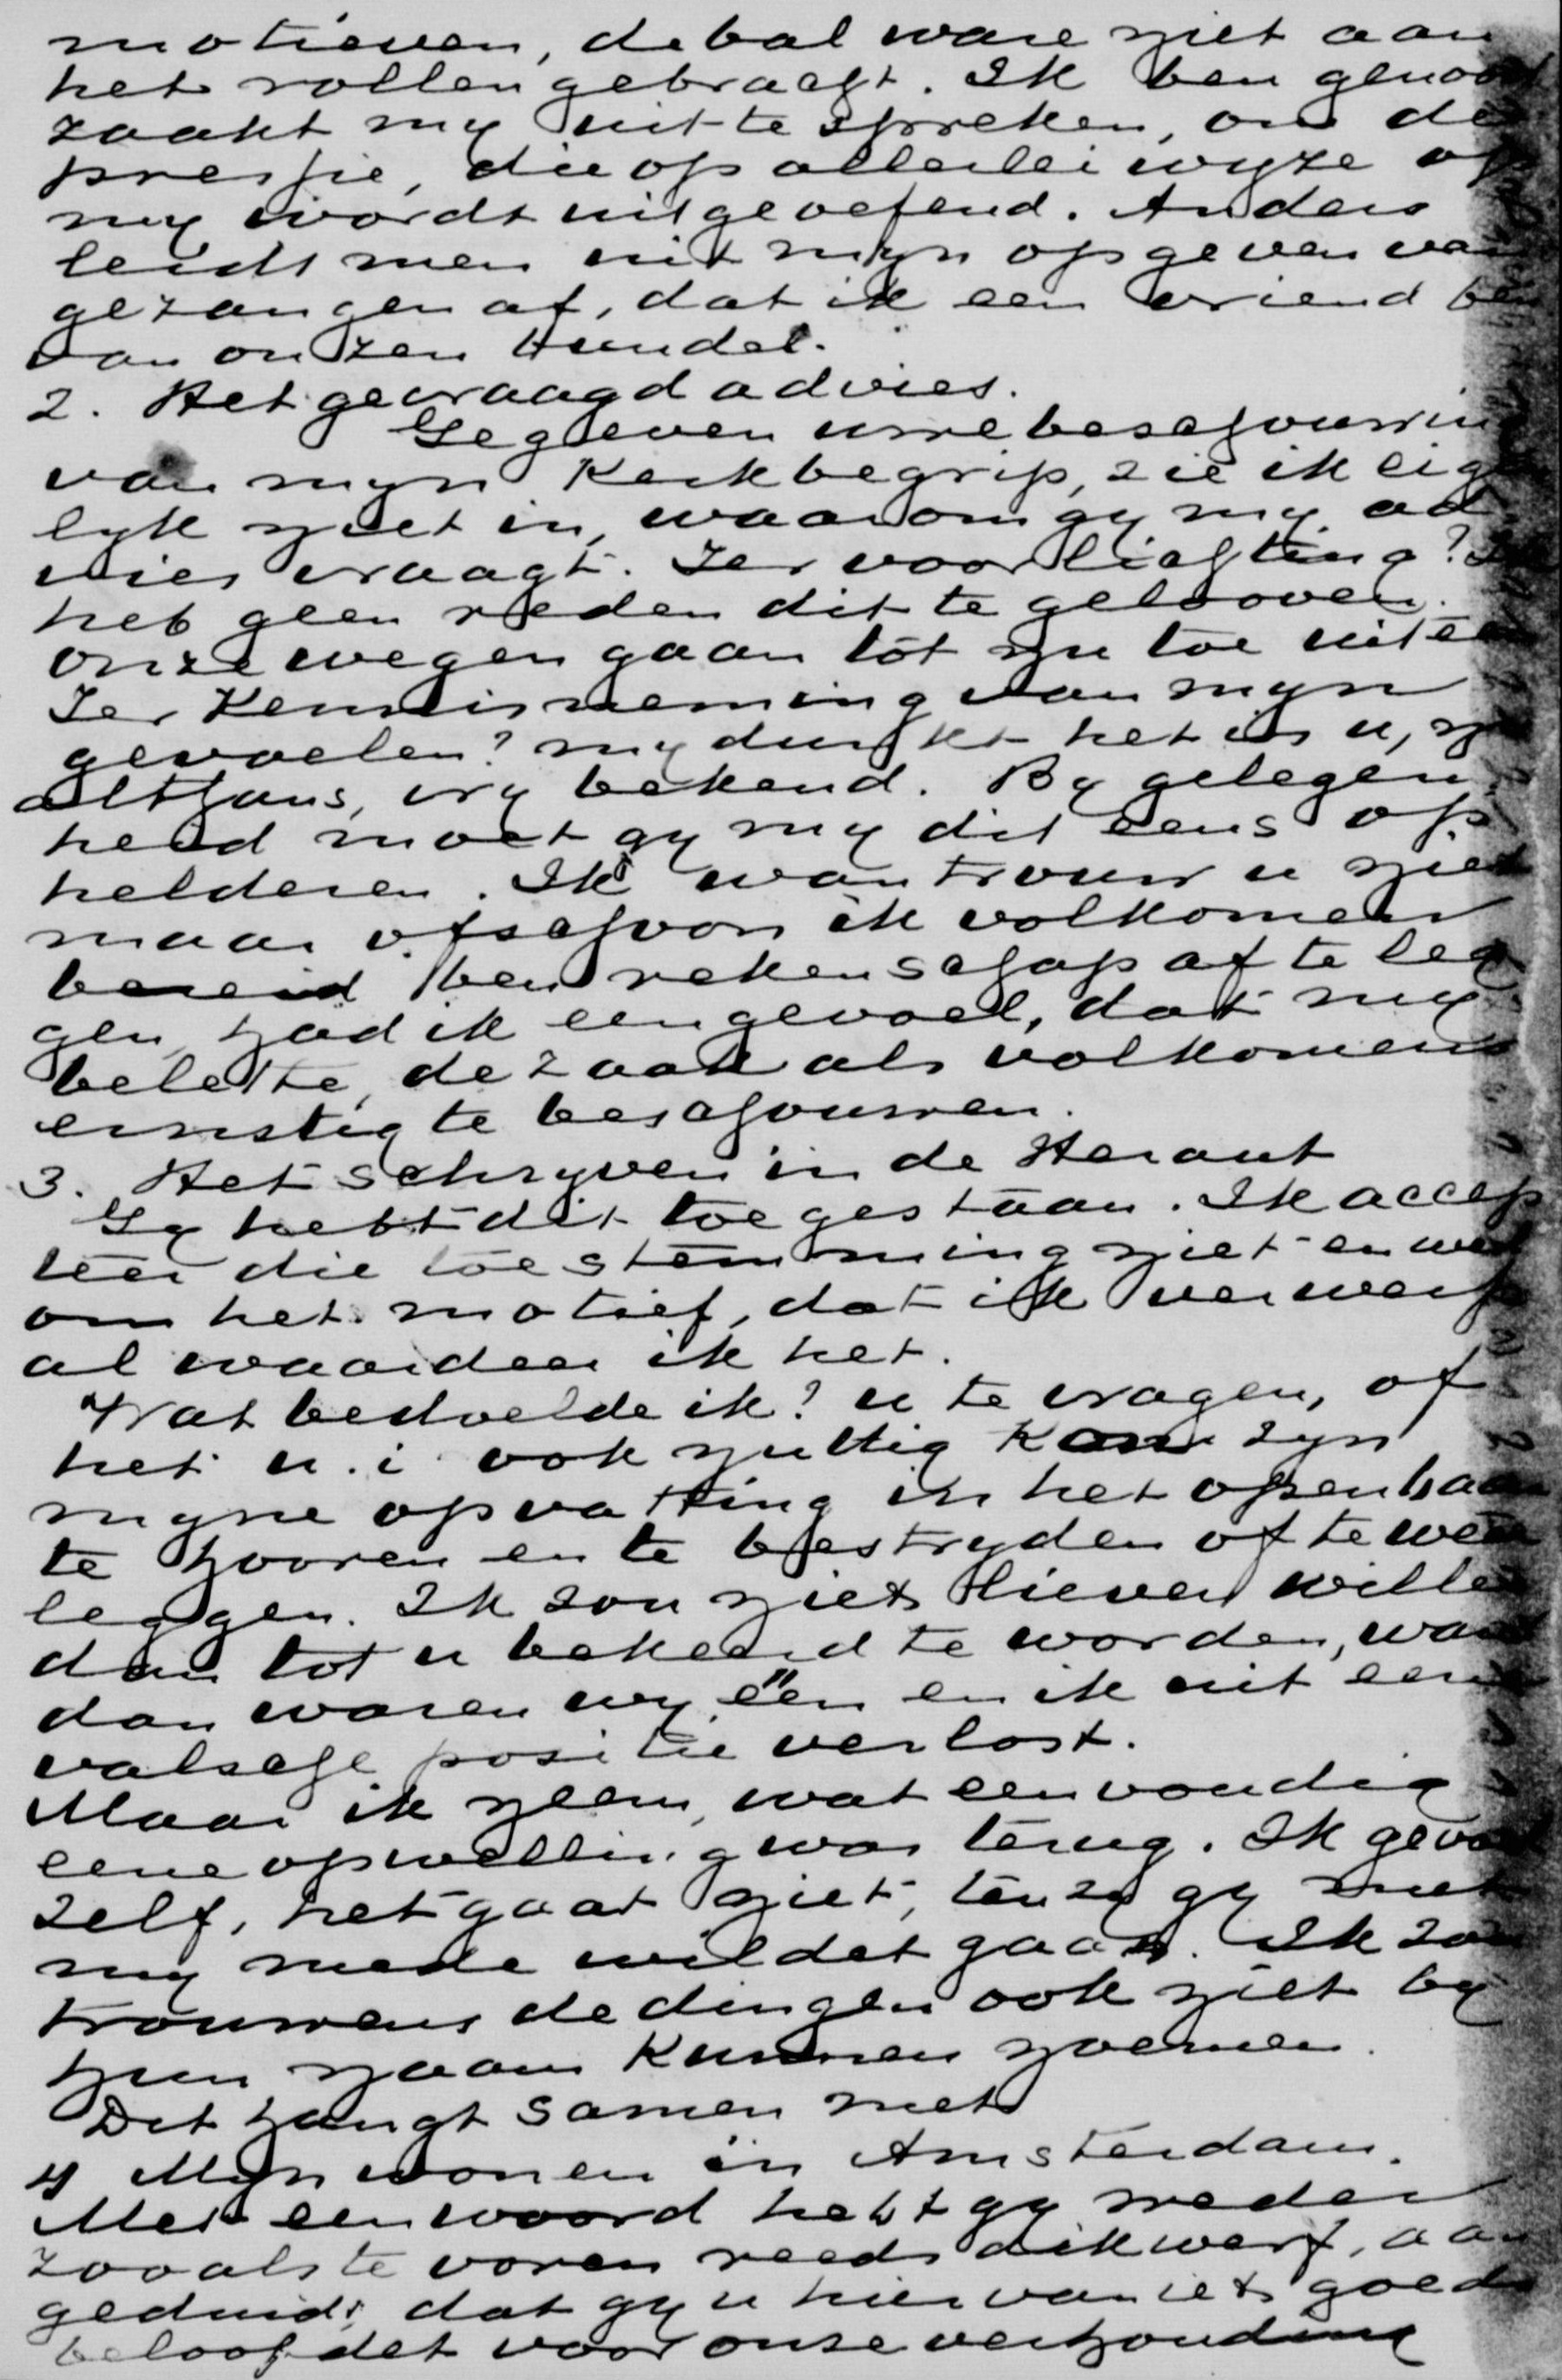 motieven, de bal ware niet aan
het rollen gebracht. Ik ben genood
zaakt my uit te spreken, om de
pressie, die op allerlei wyze op
my wordt uitgeoefend. Anders
leidt men uit myn opgeven van
gezangen af, dat ik een vriend ben
van onzen bundel.
2. Het gevraagd advies.
Gegeven uwe beschouwing
van myn Kerkbegrip, zie ik eigen
lyk niet in, waarom gy my ad
vies vraagt. Ter voorlichting? Ik
heb geen reden dit te gelooven.
onze wegen gaan tot nu toe uiteen
Ter Kennisneming van myn
gevoelen? my dunkt het is u,
althans, vry bekend. By gelegen
heid moet gy my dit eens op
helderen. Ik wantrouw u niet
maar ofschoon ik volkomen
bereid ben rekenschap af te leg
gen, had ik een gevoel, dat my
belette, de zaak als volkomen
ernstig te beschouwen.
3. Het schryven in de Heraut
Gy hebt dit toegestaan. Ik accep
teer die toestemming niet en wel
om het motief, dat ik verwerp
al waardeer ik het.
Wat bedoelde ik? u te vragen, of
het u. i. ook nuttig kon zyn
myne opvatting in het openbaar
te hooren en te bestryden of te weer
leggen. Ik zou niets liever willen
dan tot u bekeerd te worden, want
dan waren wy één en ik uit eene
valsche positie verlost.
Maar ik neem, wat eenvoudig
eene opwelling was terug. Ik gevoel
zelf, het gaat niet, tenzy gy met
my mede wildet gaan. Ik zou
trouwens de dingen ook niet by
hun naam kunnen noemen.
Dit hangt samen met
4 Myn wonen in Amsterdam.
Met een woord hebt gy weder
zooals te voren reeds dikwerf, aan
geduid, dat gy u hiervan iets goeds
beloofdet voor onze verhouding